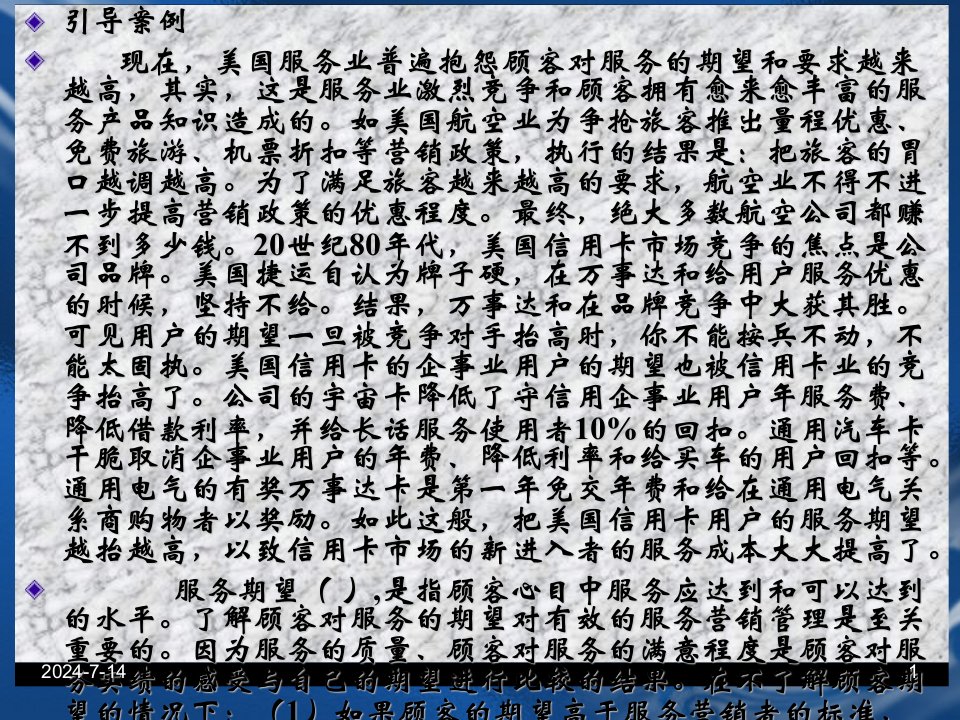 引导案例
现在，美国服务业普遍抱怨顾客对服务的期望和要求越来
越高，其实，这是服务业激烈竞争和顾客拥有愈来愈丰富的服
务产品知识造成的。如美国航空业为争抢旅客推出量程优惠、
免费旅游、机票折扣等营销政策，执行的结果是：把旅客的胃
口越调越高。为了满足旅客越来越高的要求，航空业不得不进
一步提高营销政策的优惠程度。最终，绝大多数航空公司都赚
不到多少钱。20世纪80年代，美国信用卡市场竞争的焦点是公
司品牌。美国捷运自认为牌子硬，在万事达和给用户服务优惠
的时候，坚持不给。结果，万事达和在品牌竞争中大获其胜。
可见用户的期望一旦被竞争对手抬高时，你不能按兵不动，不
能太固执。美国信用卡的企事业用户的期望也被信用卡业的竞
争抬高了。公司的宇宙卡降低了守信用企事业用户年服务费、
降低借款利率，并给长话服务使用者10%的回扣。通用汽车卡
干脆取消企事业用户的年费、降低利率和给买车的用户回扣等。
通用电气的有奖万事达卡是第一年免交年费和给在通用电气关
系商购物者以奖励。如此这般，把美国信用卡用户的服务期望
越抬越高，以致信用卡市场的新进入者的服务成本大大提高了。
服务期望（ ）,是指顾客心目中服务应达到和可以达到
的水平。了解顾客对服务的期望对有效的服务营销管理是至关
重要的。因为服务的质量、顾客对服务的满意程度是顾客对服
务实绩的感受与自己的期望进行比较的结果。在不了解顾客期
望的情况下：（1）如果顾客的期望高于服务营销者的标准，
2024-7-14
1